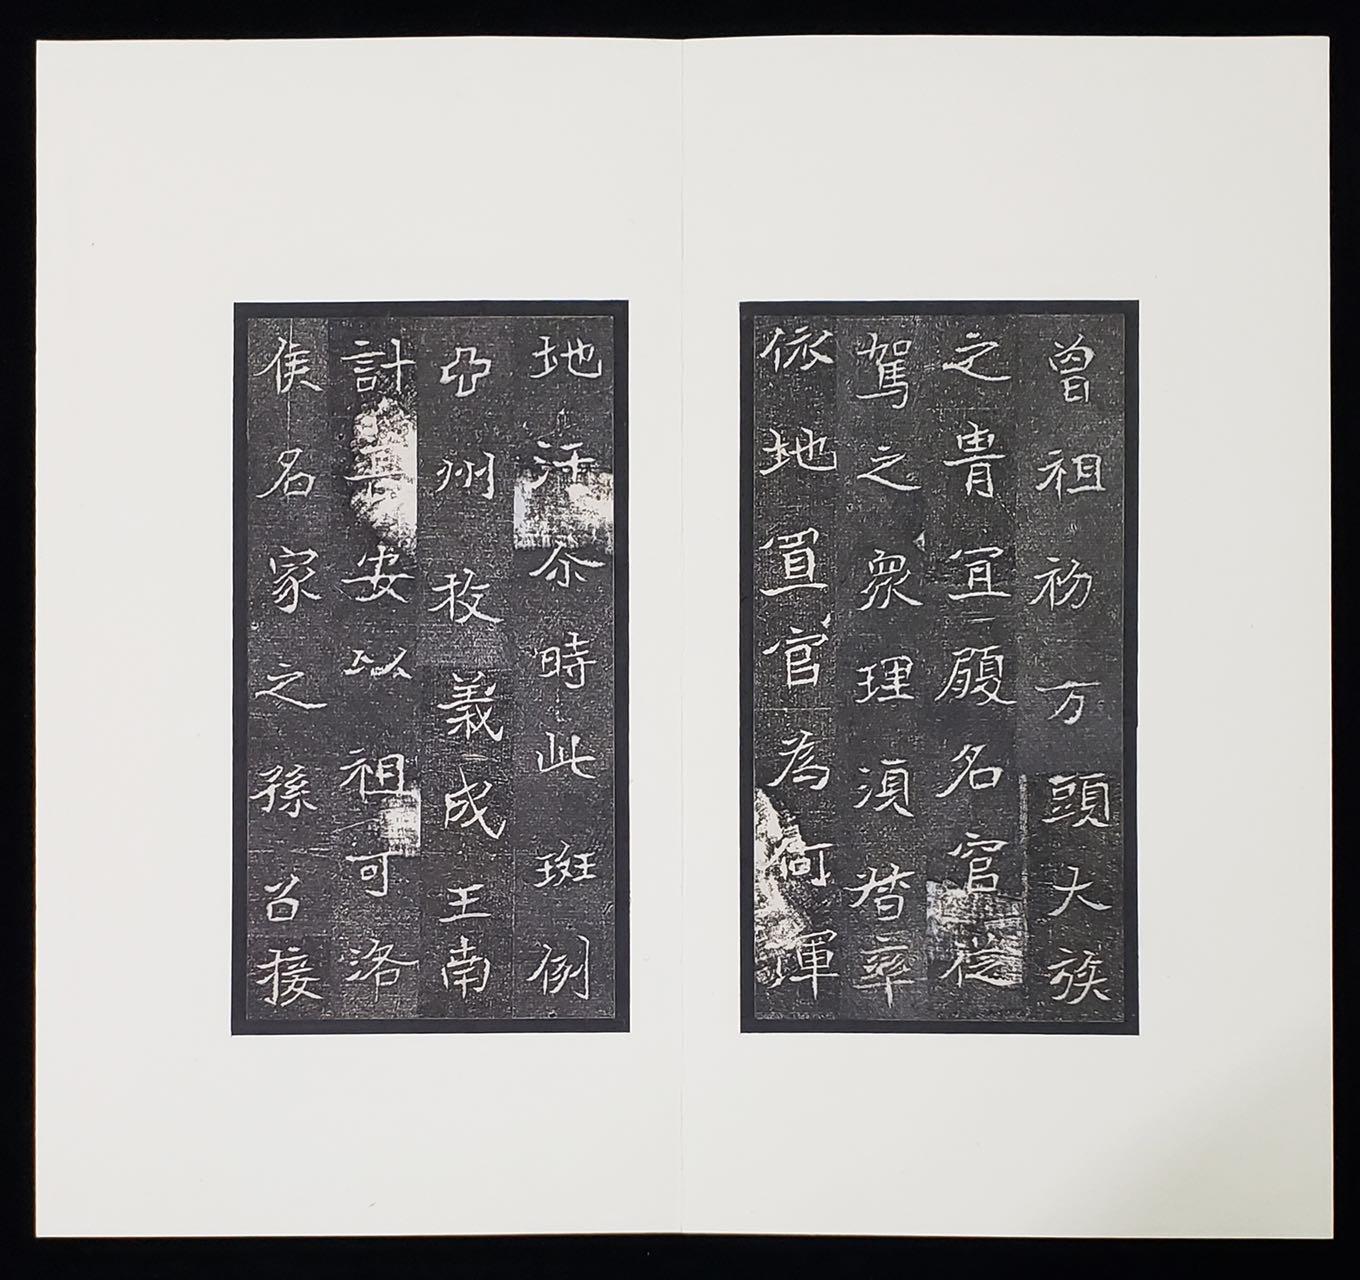 曾祖初方頭大族
之胄宜履名官從
駕之眾理須督率
依地置官為何渾
地汗尒時此斑例
亞州牧義成王南
計平安以祖可洛
侯名家之孫召接